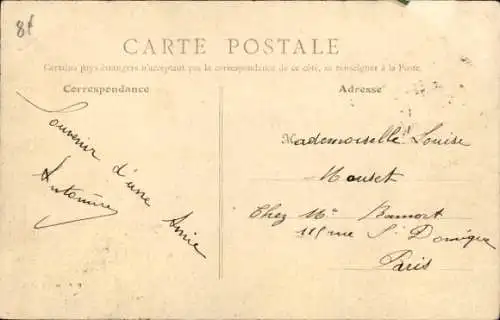 8f
CARTE POSTALE
Certains pays étrangers n'acceptant pas la correspondance de ce côté, se renseigner à la Poste.
Correspondance
Adresse
Souvenir d'une Amie
Mademoiselle Louise
Mouset
Chez Me Bamort
115 rue St Dominique
Paris